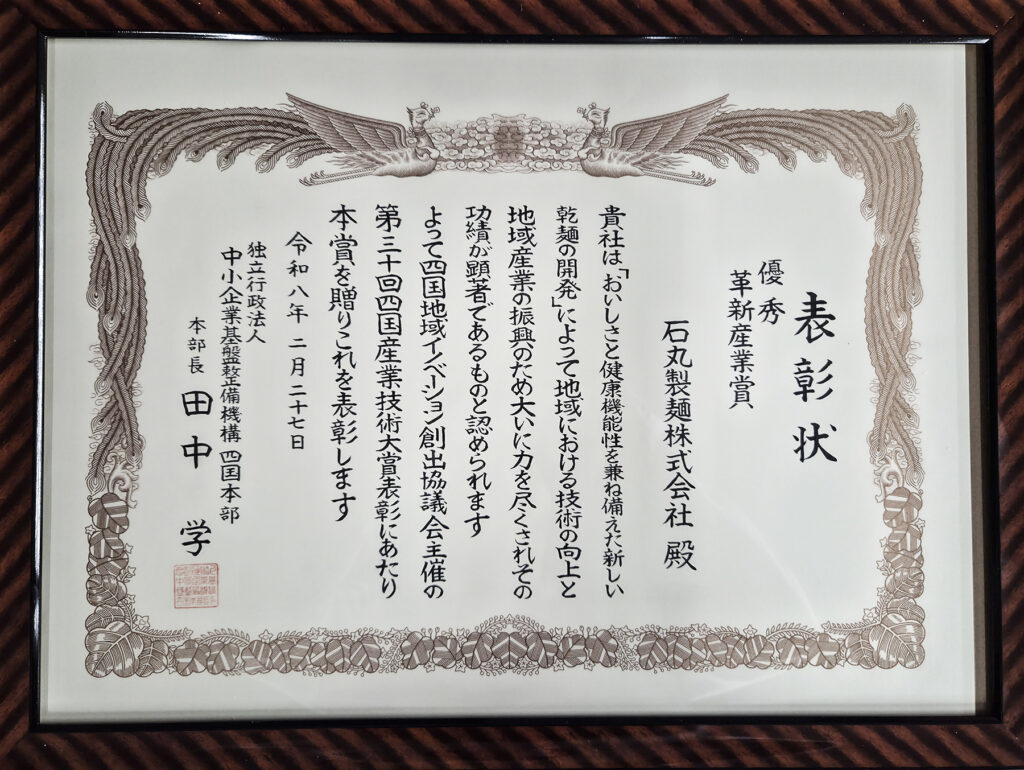 表彰状
優秀
革新産業賞
石丸製麺株式会社 殿
貴社は「おいしさと健康機能性を兼ね備えた新しい
乾麺の開発」によって地域における技術の向上と
地域産業の振興のため大いに力を尽くされその
功績が顕著であるものと認められます
よって四国地域イノベーション創出協議会主催の
第三十回四国産業技術大賞表彰にあたり
本賞を贈りこれを表彰します
令和八年 二月二十七日
独立行政法人
中小企業基盤整備機構 四国本部
本部長 田中 学